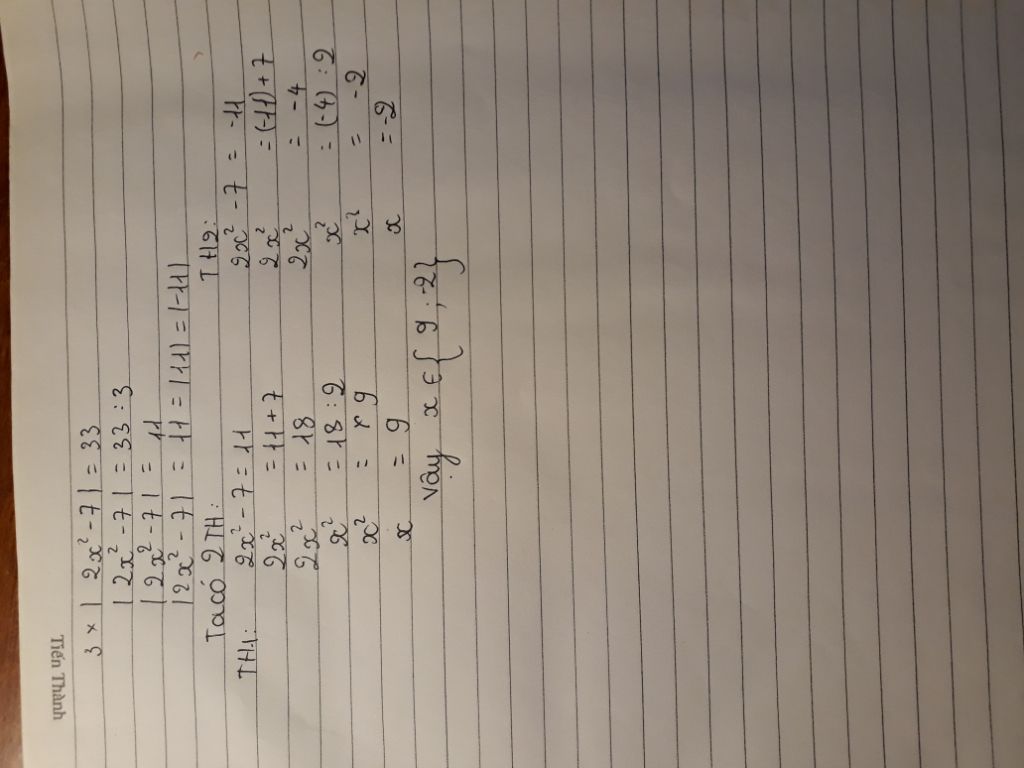 Tiến Thành
3 × | 2x² - 7 | = 33
| 2x² - 7 | = 33 : 3
| 2x² - 7 | = 11
| 2x² - 7 | = 11 = |11| = |-11|
Ta có 2 TH:
TH1:
2x² - 7 = 11
2x² = 11 + 7
2x² = 18
x² = 18 : 2
x² = 9
x = 9
TH2:
2x² - 7 = -11
2x² = (-11) + 7
2x² = -4
x² = (-4) : 2
x² = -2
x = -2
Vậy x ∈ { 9 ; -2 }